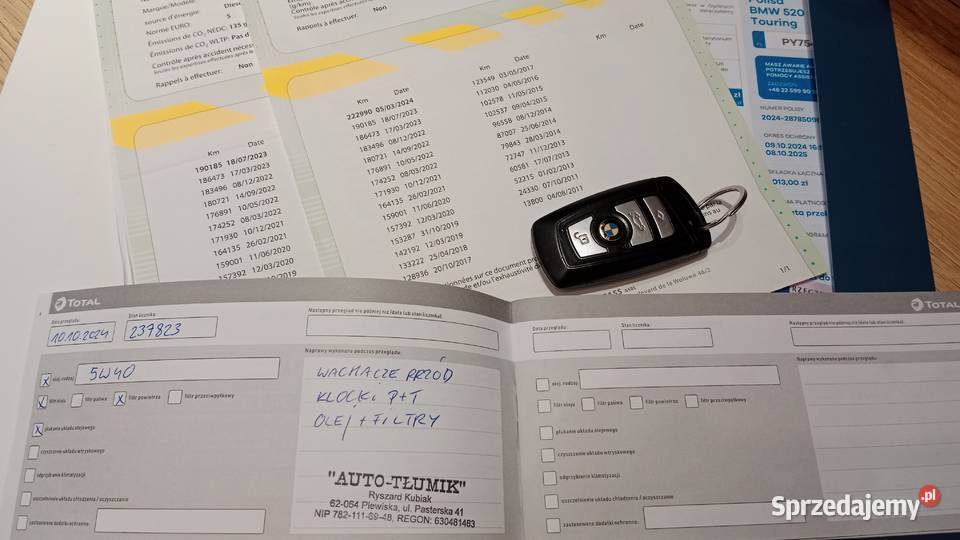 Marque/Modèle:
source d'énergie: Diese
Norme EURO: 5
Émissions de CO₂ NEDC: 135 g
Émissions de CO₂ WLTP: Pas d
Contrôle après accident nécess
Rappels à effectuer: Non
Contrôle après
Rappels à effectuer: Non
Km Date
190185 18/07/2023
186473 17/03/2023
183496 08/12/2022
180721 14/09/2022
176891 10/05/2022
174252 08/03/2022
171930 10/12/2021
164135 26/02/2021
159001 11/06/2020
157392 12/03/2020
/2019
Km Date
222990 05/03/2024
190185 18/07/2023
186473 17/03/2023
183496 08/12/2022
180721 14/09/2022
176891 10/05/2022
174252 08/03/2022
171930 10/12/2021
164135 26/02/2021
159001 11/06/2020
157392 12/03/2020
153287 31/10/2019
142192 12/03/2019
133222 25/04/2018
128936 20/10/2017
Km Date
123549 03/05/2017
112030 04/05/2016
102578 11/05/2015
102537 09/04/2015
96558 08/12/2014
87007 25/06/2014
79843 28/03/2014
72747 11/12/2013
60581 17/07/2013
52215 01/02/2013
24330 07/10/2011
13800 04/08/2011
Km Date
1/1
Polisa
BMW 520
Touring
PL PY754
MASZ AWARIĘ A
POTRZEBUJESZ
POMOCY ASSIS
+48 22 599 90 9
NUMER POLISY
2024-2878509
OKRES OCHRONY
09.10.2024 16:
08.10.2025
SKŁADKA ŁĄCZNA
013,00 zł
TOTAL
Data przeglądu: Stan licznika: Następny przegląd nie później niż (data lub stan licznika):
10.10.2024 237823
olej, rodzaj 5W40
filtr oleju filtr paliwa filtr powietrza filtr przeciwpyłkowy
płukanie układu olejowego
czyszczenie układu wtryskowego
odgrzybianie klimatyzacji
uszczelnienie układu chłodzenia / oczyszczanie
zastosowano dodatki ochronne:
Naprawy wykonane podczas przeglądu:
WACHACZE PRZÓD
KLOCKI P+T
OLEJ + FILTRY
"AUTO-TŁUMIK"
Ryszard Kubiak
62-064 Plewiska, ul. Pasterska 41
NIP 782-111-69-48, REGON: 630481463
TOTAL
Data przeglądu: Stan licznika: Następny przegląd nie później niż (data lub stan licznika):
Naprawy wykonane podczas przeglądu:
olej, rodzaj
filtr oleju filtr paliwa filtr powietrza filtr przeciwpyłkowy
płukanie układu olejowego
czyszczenie układu wtryskowego
odgrzybianie klimatyzacji
uszczelnienie układu chłodzenia / oczyszczanie
zastosowano dodatki ochronne:
Sprzedajemy.pl